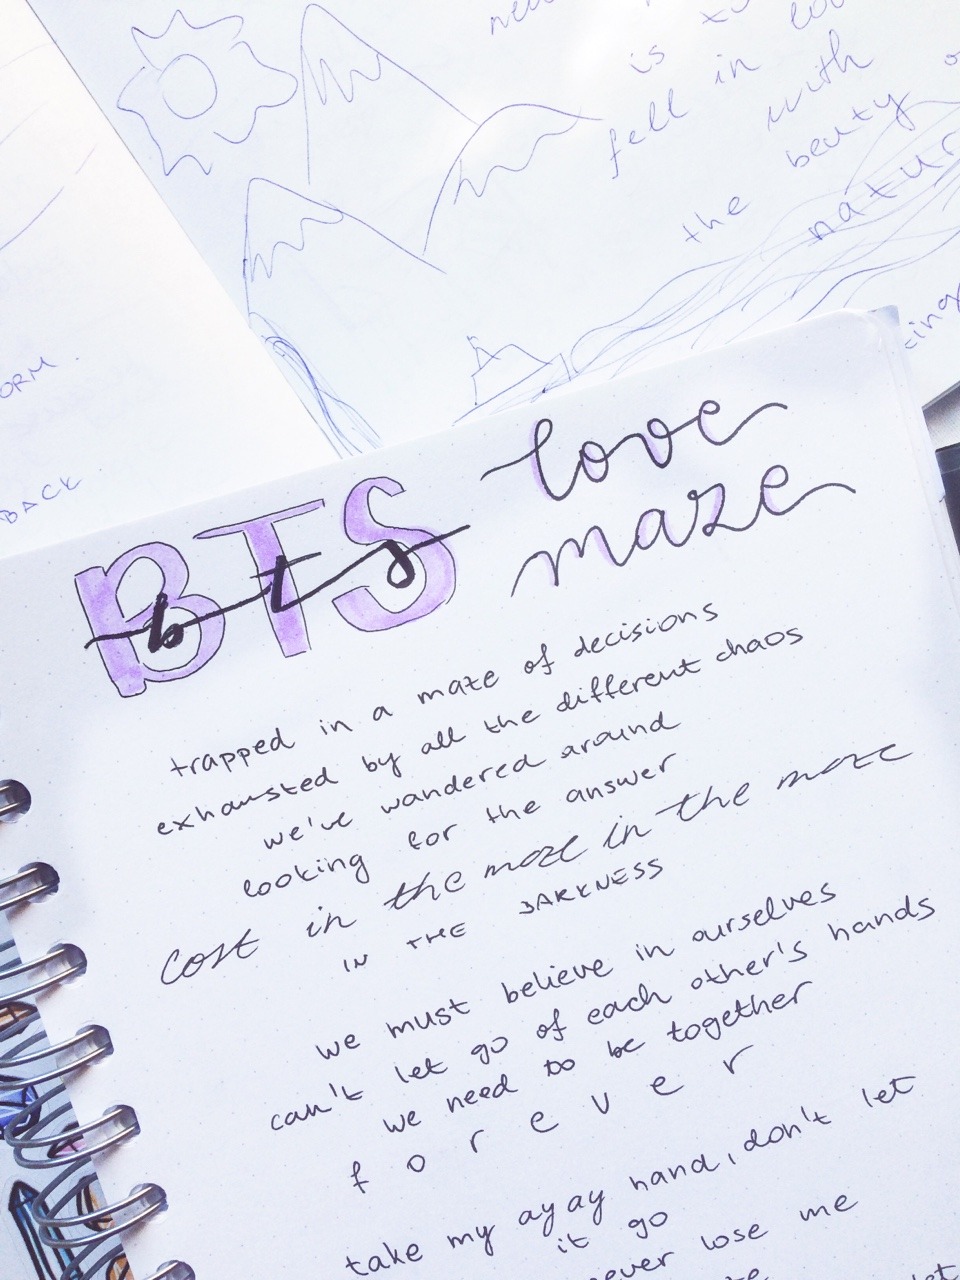 is
fell in
with
the beauty
ORM
BACK
BTS
bts
love
maze
trapped in a maze of decisions
exhausted by all the different chaos
we've wandered around
looking for the answer
lost in the maze in the maze
IN THE DARKNESS
we must believe in ourselves
can't let go of each other's hands
we need to be together
forever
take my ay ay hand, don't let
it go
lose me